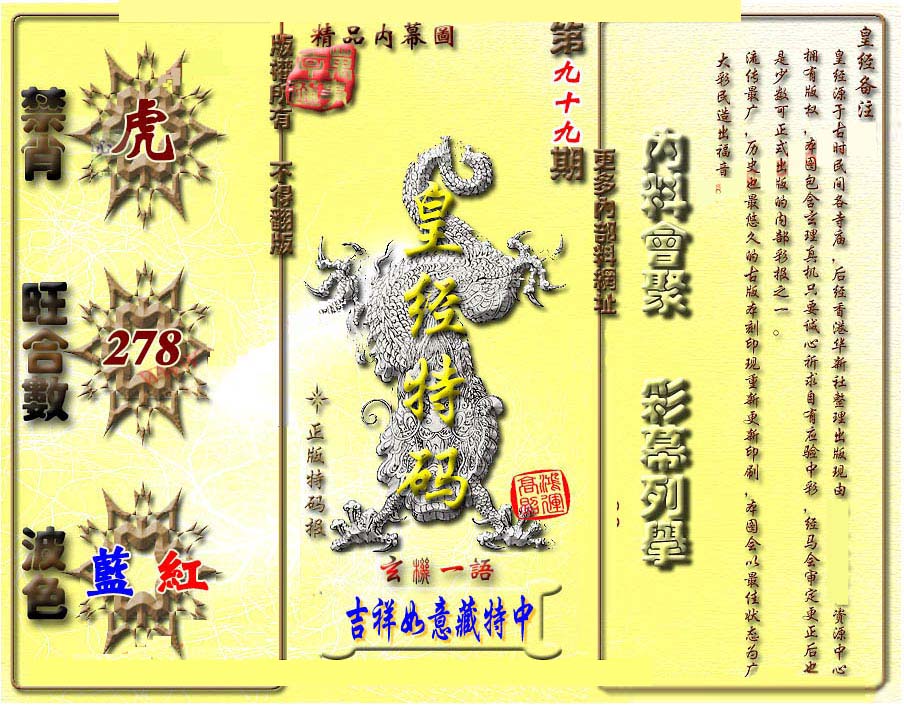 皇经备注
皇经源于古时民间各寺庙，后经香港华新社整理出版现由 资源中心
拥有版权，本图包含玄理真机只要诚心祈求自有应验中彩，经马会审定更正后也
是少数可正式出版的内部彩报之一。
流传最广，历史也最悠久的古版本刻印现重新更新印刷，本图会以最佳状态为广
大彩民造出福音
内料會聚
彩幕列舉
更多內部料網址
第九十九期
精品内幕圖
皇经特码
正版特码报
鴻運高照
玄機一語
吉祥如意藏特中
版權所有 不得翻版
禁肖
虎
旺合數
278
波色
藍 紅